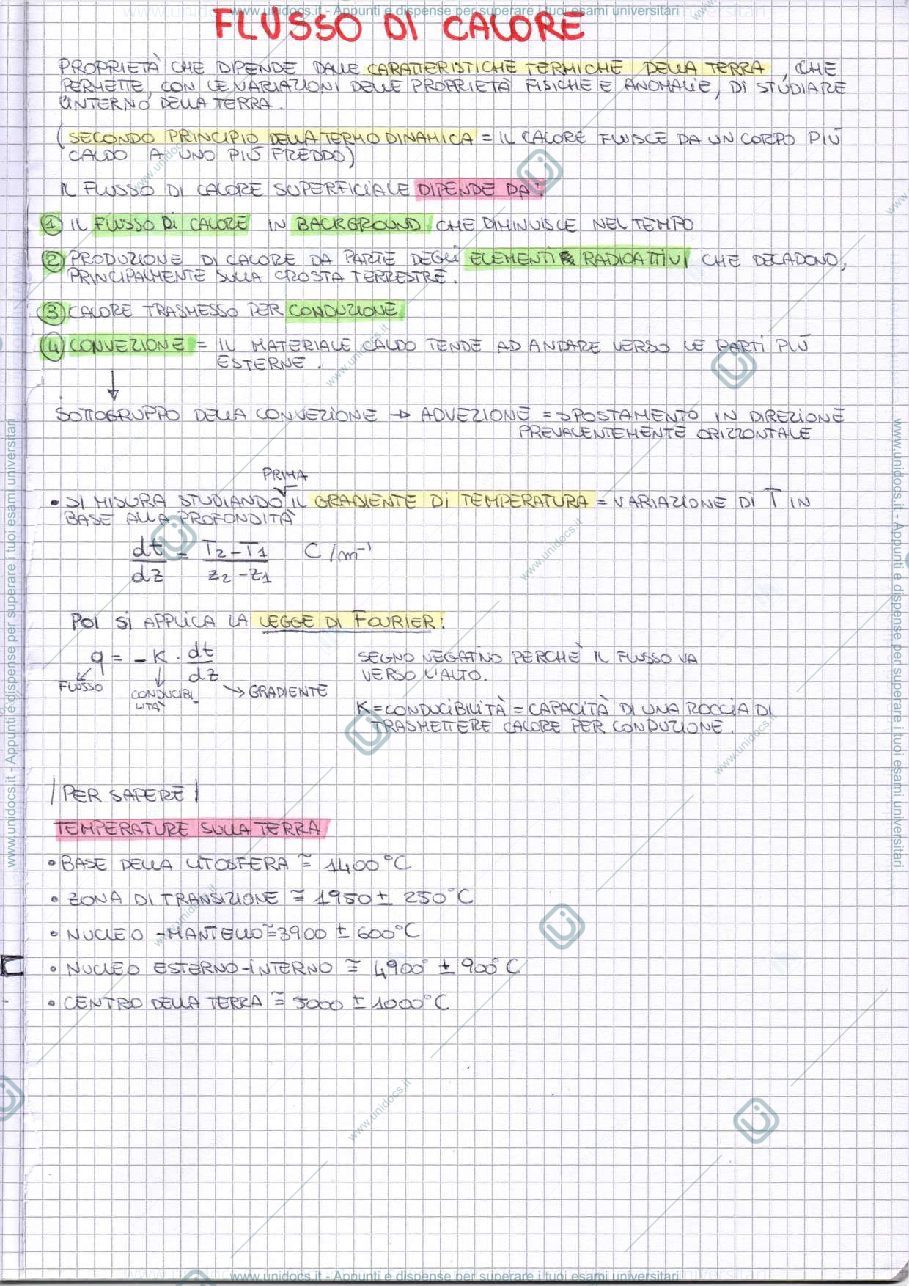 www.unidocs.it - Appunti e dispense per superare i tuoi esami universitari
FLUSSO DI CALORE
PROPRIETÀ CHE DIPENDE DALLE CARATTERISTICHE TERMICHE DELLA TERRA, CHE
PERMETTE, CON LE VARIAZIONI DELLE PROPRIETÀ FISICHE E ANOMALIE, DI STUDIARE
L'INTERNO DELLA TERRA.
(SECONDO PRINCIPIO DELLA TERMODINAMICA = IL CALORE FLUISCE DA UN CORPO PIÙ
CALDO A UNO PIÙ FREDDO)
IL FLUSSO DI CALORE SUPERFICIALE DIPENDE DA:
① IL FLUSSO DI CALORE IN BACKGROUND CHE DIMINUISCE NEL TEMPO
② PRODUZIONE DI CALORE DA PARTE DEGLI ELEMENTI RADIOATTIVI CHE DECADONO,
PRINCIPALMENTE SULLA CROSTA TERRESTRE.
③ CALORE TRASMESSO PER CONDUZIONE
④ CONVEZIONE = IL MATERIALE CALDO TENDE AD ANDARE VERSO LE PARTI PIÙ
ESTERNE.
↓
SOTTOGRUPPO DELLA CONVEZIONE → ADVEZIONE = SPOSTAMENTO IN DIREZIONE
PREVALENTEMENTE ORIZZONTALE
PRIMA
• SI MISURA STUDIANDO IL GRADIENTE DI TEMPERATURA = VARIAZIONE DI T IN
BASE ALLA PROFONDITÀ
dt/dz = T2-T1/z2-z1 C/m⁻¹
POI SI APPLICA LA LEGGE DI FOURIER:
q = -K · dt/dz
FLUSSO CONDUCIBI
LITÀ → GRADIENTE
SEGNO NEGATIVO PERCHÈ IL FLUSSO VA
VERSO L'ALTO.
K = CONDUCIBILITÀ = CAPACITÀ DI UNA ROCCIA DI
TRASMETTERE CALORE PER CONDUZIONE.
|PER SAPERE|
TEMPERATURE SULLA TERRA
• BASE DELLA LITOSFERA ≅ 1400°C
• ZONA DI TRANSIZIONE ≅ 1950 ± 250°C
• NUCLEO - MANTELLO ≅ 3900 ± 600°C
• NUCLEO ESTERNO-INTERNO ≅ 4900° ± 900°C
• CENTRO DELLA TERRA ≅ 5000 ± 1000°C
www.unidocs.it - Appunti e dispense per superare i tuoi esami universitari